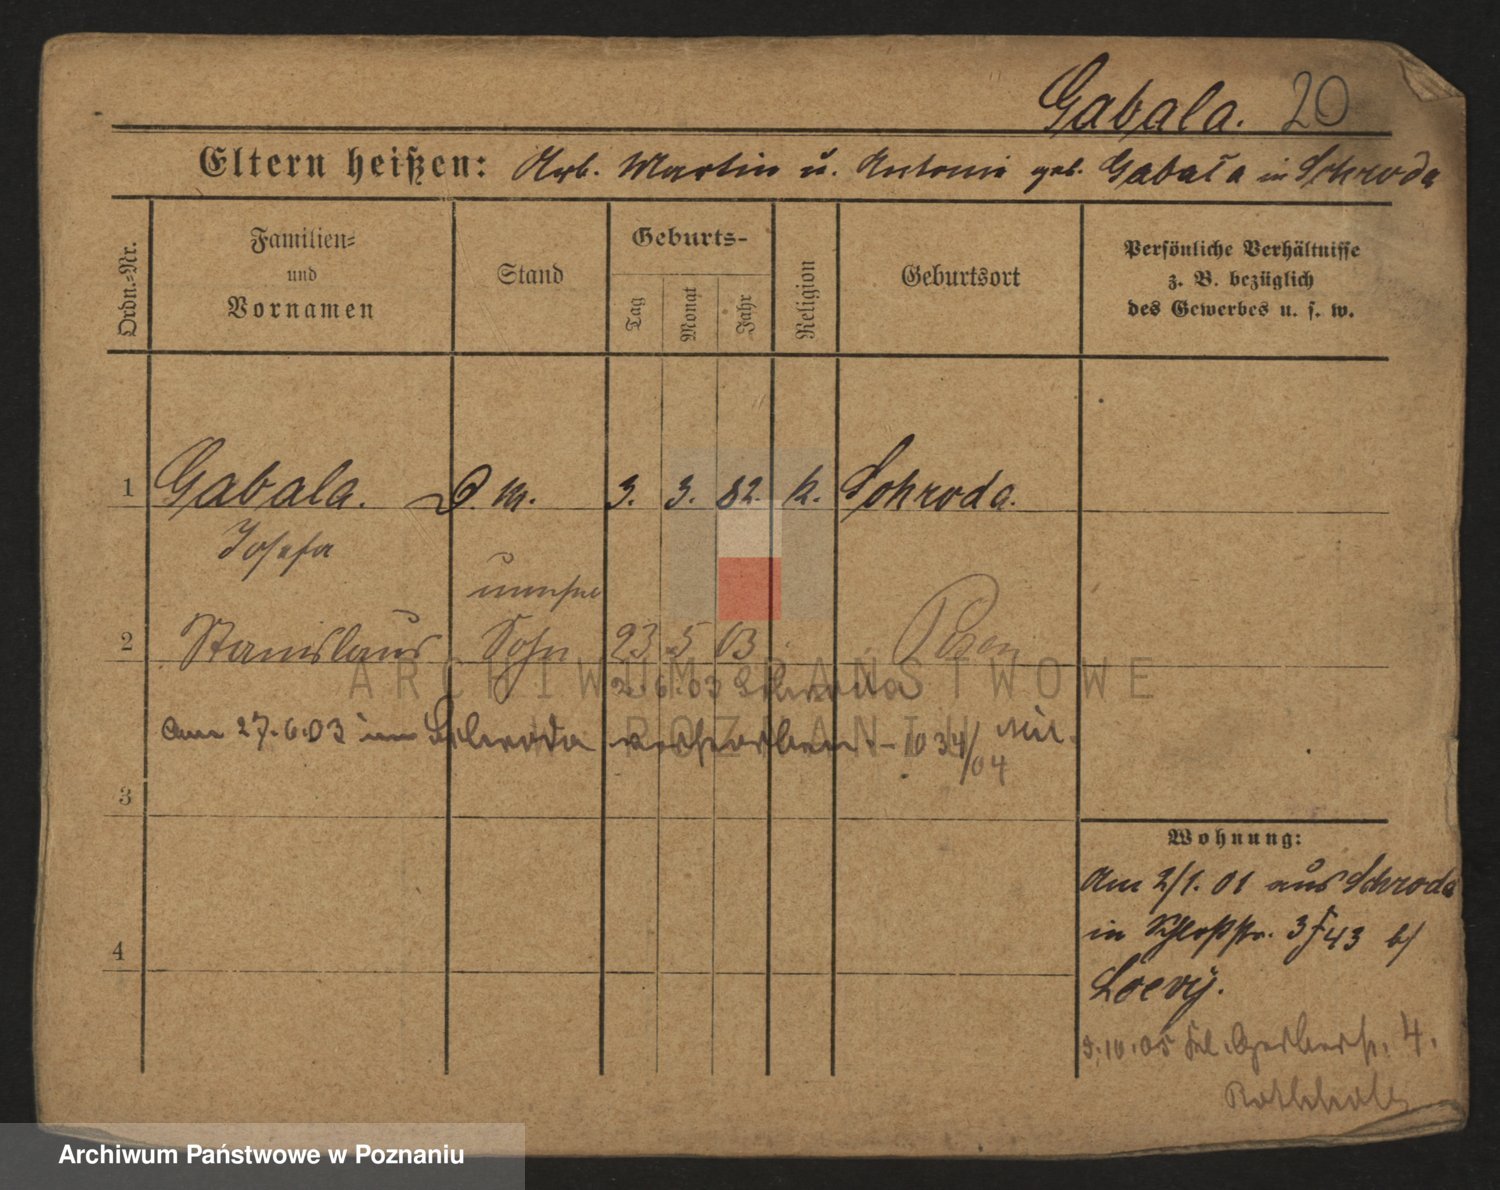 Gabala. 20
Eltern heißen: Arb. Martin u. Antonie geb. Gabała in Schroda
Ordn.-Nr.
Familien-
und
Vornamen
Stand
Geburts-
Tag
Monat
Jahr
Religion
Geburtsort
Persönliche Verhältnisse
z. B. bezüglich
des Gewerbes u. s. w.
1 Gabala. D. M. 3. 3. 82. k. Schroda.
Josefa
unehel
2 Stanislaus Sohn 23 5 03 Posen
2. 6. 03 Schroda
am 27.6.03 in Schroda verstorben. - 1034/04
3
4
Wohnung:
Am 2/1. 01 aus Schroda
in Schloßstr. 3 43 b/
Loevy.
10.05 Gerberstr. 4.
Rothholz
ARCHIWUM PAŃSTWOWE
W POZNANIU
Archiwum Państwowe w Poznaniu